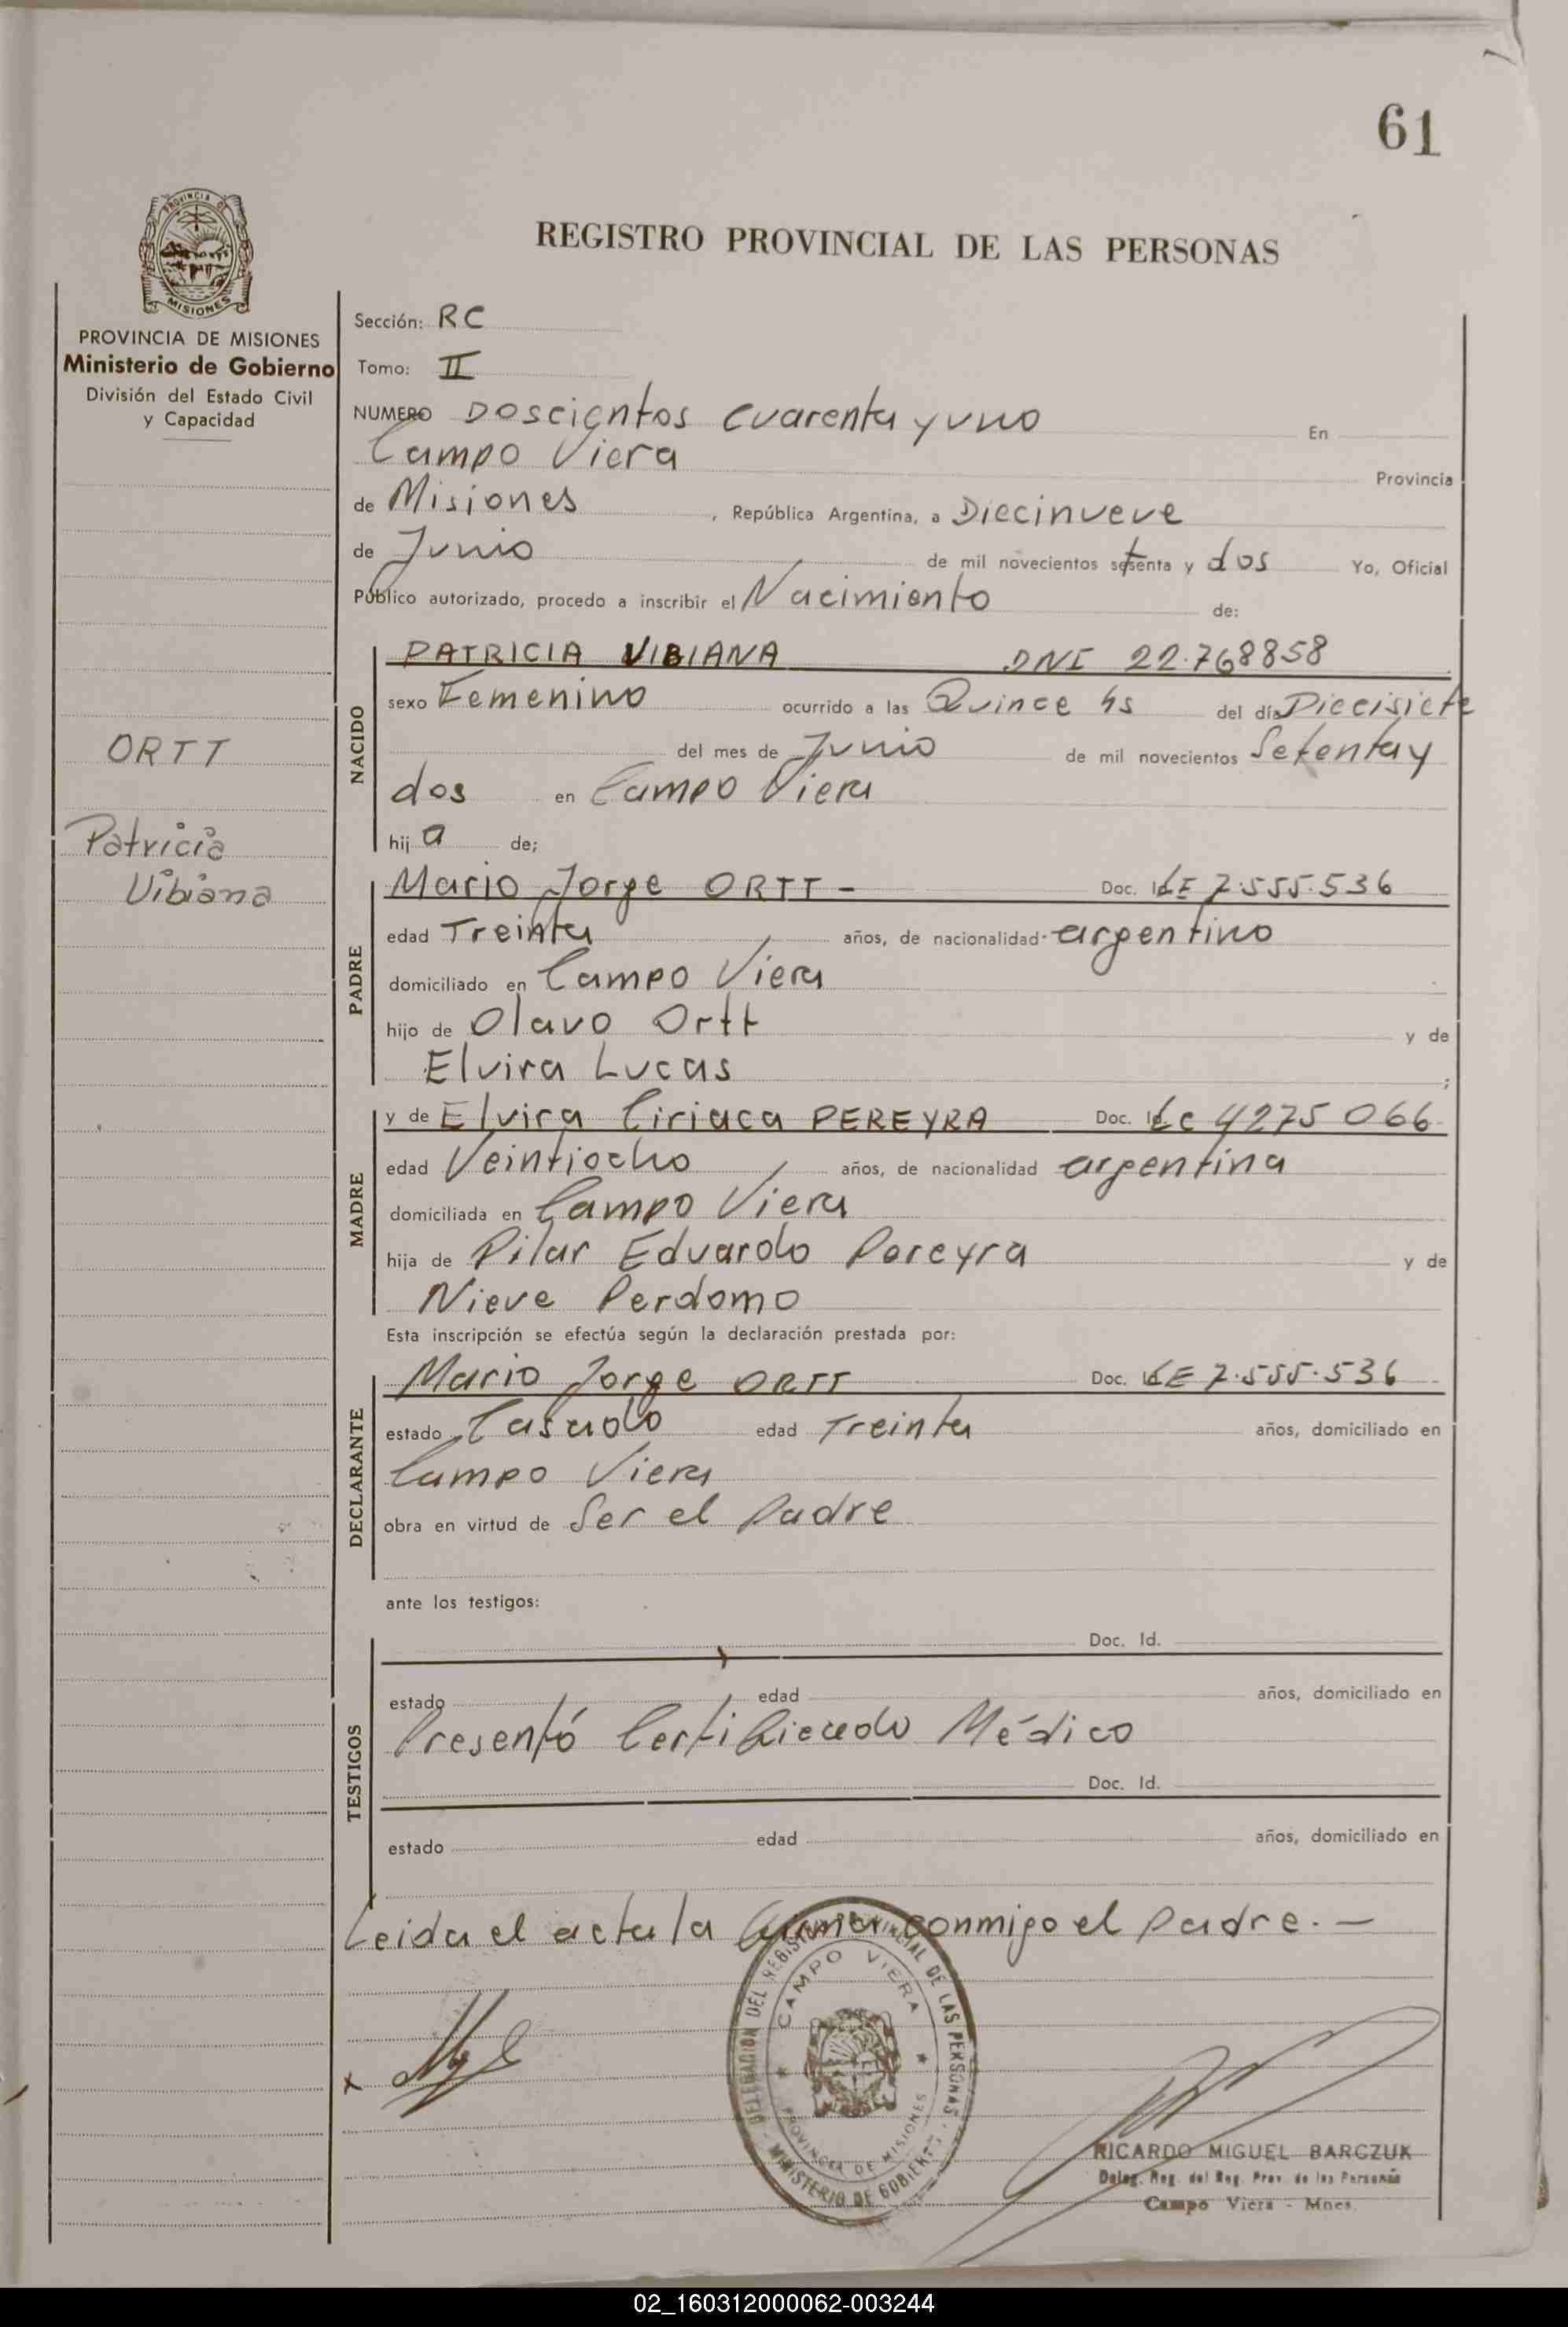 61
REGISTRO PROVINCIAL DE LAS PERSONAS
PROVINCIA DE
MISIONES
PROVINCIA DE MISIONES
Ministerio de Gobierno
División del Estado Civil
y Capacidad
ORTT
Patricia
Vibiana
Sección: RC
Tomo: II
NUMERO Doscientos cuarenta y uno En
Campo Viera Provincia
de Misiones, República Argentina, a Diecinueve
de Junio de mil novecientos setenta y dos Yo, Oficial
Público autorizado, procedo a inscribir el Nacimiento de:
NACIDO
PATRICIA VIBIANA DNI 22.768858
sexo Femenino ocurrido a las Quince hs del día Diecisiete
del mes de Junio de mil novecientos Setenta y
dos en Campo Viera
hija de;
PADRE
Mario Jorge ORTT - Doc. Id. LE 7.555.536
edad Treinta años, de nacionalidad argentino
domiciliado en Campo Viera
hijo de Olavo Ortt y de
Elvira Lucas ;
MADRE
y de Elvira Ciriaca PEREYRA Doc. Id. LC 4275066
edad Veintiocho años, de nacionalidad argentina
domiciliada en Campo Viera
hija de Pilar Eduardo Pereyra y de
Nieve Perdomo
Esta inscripción se efectúa según la declaración prestada por:
DECLARANTE
Mario Jorge ORTT Doc. Id. LE 7.555.536
estado Casado edad Treinta años, domiciliado en
Campo Viera
obra en virtud de Ser el Padre
ante los testigos:
TESTIGOS
Doc. Id.
estado edad años, domiciliado en
Presentó Certificado Médico
Doc. Id.
estado edad años, domiciliado en
Leida el acta la firma conmigo el Padre. —
DELEGACION DEL REGISTRO PROVINCIAL DE LAS PERSONAS
CAMPO VIERA
PROVINCIA DE MISIONES
MINISTERIO DE GOBIERNO
x
RICARDO MIGUEL BARCZUK
Deleg. Reg. del Reg. Prov. de las Personas
Campo Viera - Mnes.
02_160312000062-003244